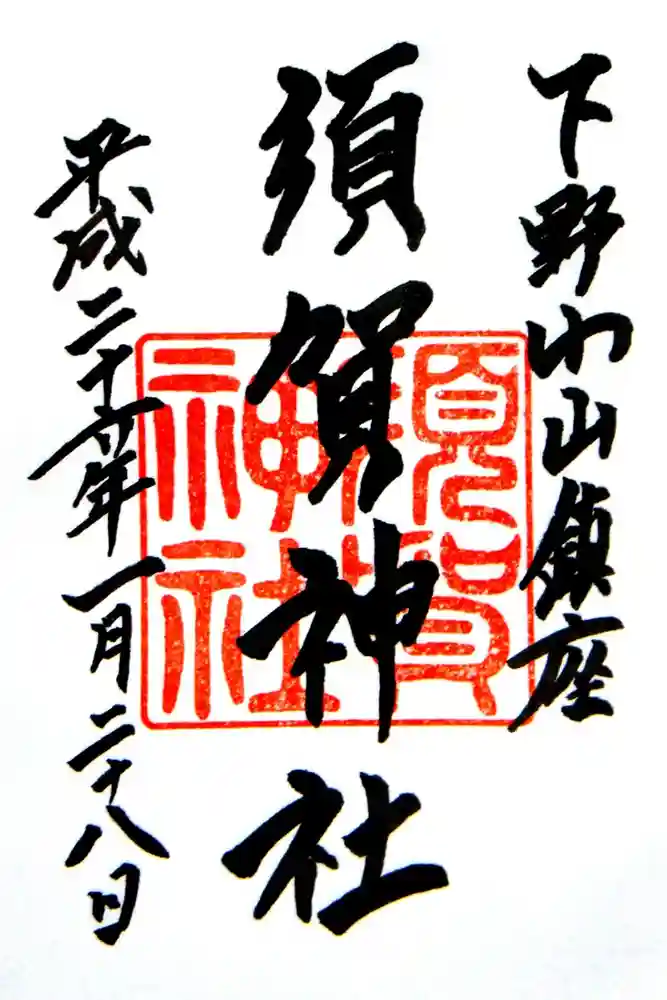 下野小山鎮座
須賀神社
平成二十六年一月二十八日
須賀
神社